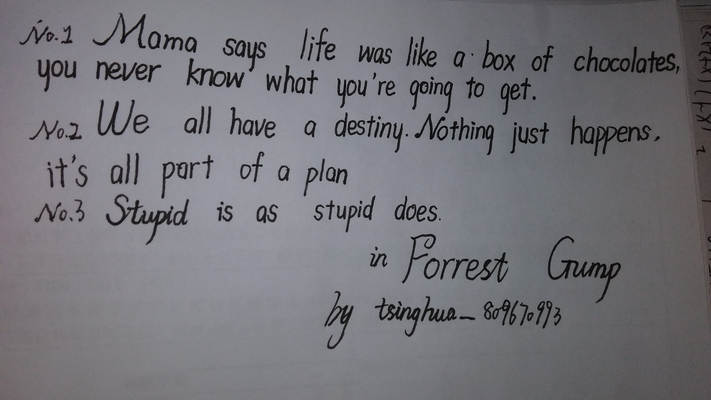 No.1 Mama says life was like a box of chocolates,
you never know what you're going to get.
No.2 We all have a destiny. Nothing just happens,
it's all part of a plan
No.3 Stupid is as stupid does.
in Forrest Gump
by tsinghua_809670993